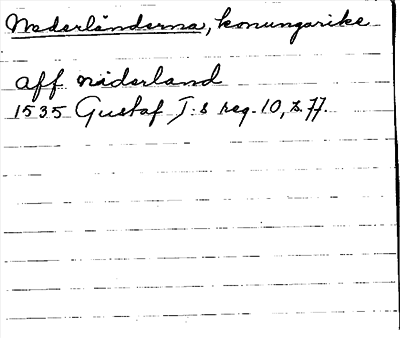 Nederländerna, konungarike
aff niderland
1535 Gustaf I:s reg. 10, s. 77.